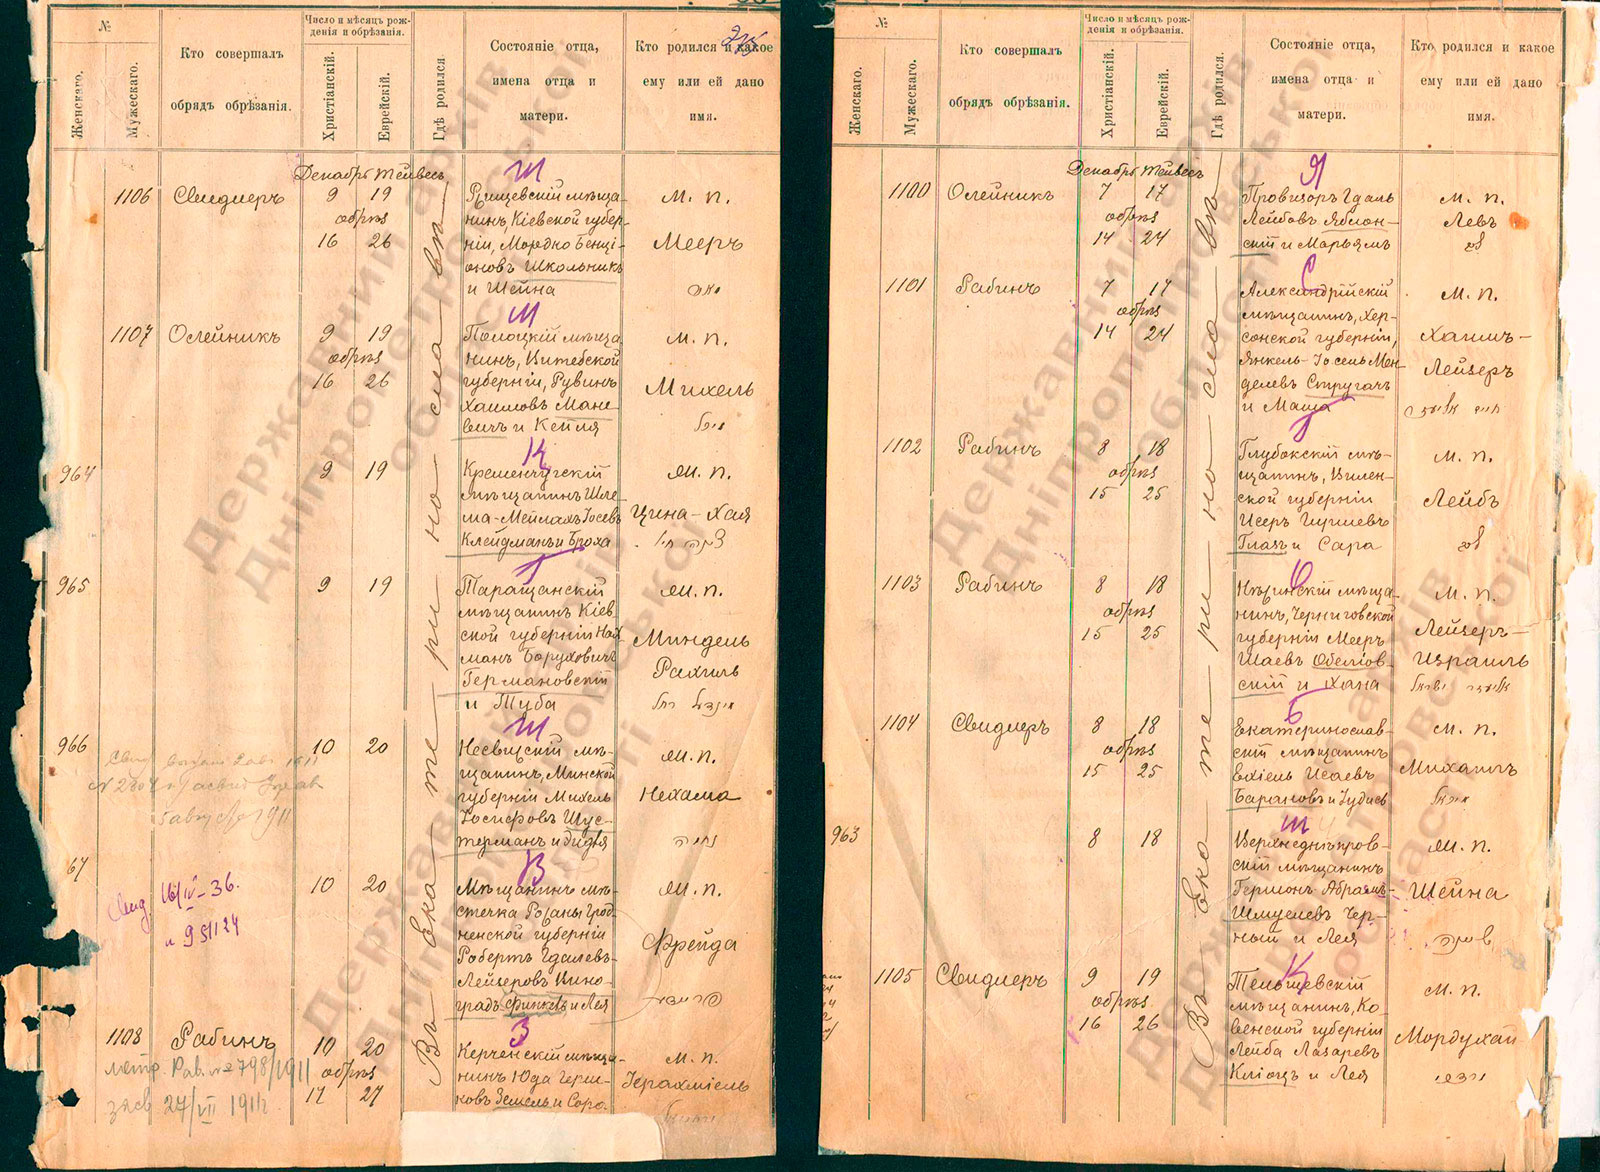 №
Женскаго.
Мужескаго.
Кто совершалъ
обрядъ обрѣзанія.
Число и мѣсяцъ рож-
денія и обрѣзанія.
Христіанскій.
Еврейскій.
Гдѣ родился
Состояніе отца,
имена отца и
матери.
Кто родился и какое
ему или ей дано
имя.
Декабрь Тейвесъ
Въ Екатеринославѣ
Ш
1106 Свидлеръ 9 19
обрѣз
16 26
Ржищевскій мѣща-
нинъ, Кіевской губер-
ніи, Мордко Бенці-
оновъ Школьникъ
и Шейна
м. п.
Мееръ
М
1107 Олейникъ 9 19
обрѣз
16 26
Полоцкій мѣща
нинъ, Витебской
губерніи, Рувинъ
Хаимовъ Мане
вичъ и Кейля
м. п.
Михель
К
964 9 19
Кременчугскій
мѣщанинъ Шле
ма-Мейлахъ Іосевъ
Клейдманъ и Броха
ж. п.
Цина-Хая
Г
965 9 19
Таращанскій
мѣщанинъ Кіев
ской губерніи Нах
манъ Боруховичъ
Германовскій
и Туба
ж. п.
Миндель
Рахиль
Ш
966 10 20
Несвижскій мѣ-
щанинъ, Минской
губерніи Михель
Іосифовъ Шус-
терманъ и
ж. п.
Нехама
5 августа 1911
В
67 10 20
Свид. 16/IV-36.
Мѣщанинъ мѣ-
стечка Рожаны Грод
ненской губерніи
Робертъ Гдалевъ-
Лейзеровъ Вино-
градъ Финкель и Лея
ж. п.
Фрейда
З
1108 Рабинъ 10 20
обрѣз
17 27
метр. Рав. № 798/1911
27/VII 1911г
Керченскій мѣща-
нинъ Юда Герш-
ковъ Земель и Соро.
м. п.
Іерахміель
№
Женскаго.
Мужескаго.
Кто совершалъ
обрядъ обрѣзанія.
Число и мѣсяцъ рож-
денія и обрѣзанія.
Христіанскій.
Еврейскій.
Гдѣ родился.
Состояніе отца,
имена отца и
матери.
Кто родился и какое
ему или ей дано
имя.
Декабрь Тейвесъ
Въ Екатеринославѣ
Я
1100 Олейникъ 7 17
обрѣз
14 24
Провизоръ Гдаль
Лейбовъ Яблон-
скій и Марьямъ
м. п.
Левъ
С
1101 Рабинъ 7 17
обрѣз
14 24
Александрійскій
мѣщанинъ, Хер-
сонской губерніи,
Янкель-Іосель Мен-
делевъ Стругачъ
и Маша
м. п.
Хаимъ-
Лейзеръ
Г
1102 Рабинъ 8 18
обрѣз
15 25
Глубокскій мѣ-
щанинъ, Вилен-
ской губерніи
Исеръ Гиршевъ
Глазъ и Сара
м. п.
Лейбъ
О
1103 Рабинъ 8 18
обрѣз
15 25
Нѣжинскій мѣща-
нинъ, Черниговской
губерніи Мееръ
Шаевъ Обеліов-
скій и Хана
м. п.
Лейзеръ-
Израиль
Б
1104 Свидлеръ 8 18
обрѣз
15 25
Екатеринослав-
скій мѣщанинъ
Ехіель Исаевъ
Барановъ и Іудисъ
м. п.
Михаилъ
963 8 18
Верхнеднѣпров-
скій мѣщанинъ
Гершонъ Абрамъ-
Шмуелевъ Чер-
ный и Лея
ж. п.
Шейна
К
1105 Свидлеръ 9 19
обрѣз
16 26
Тельшевскій
мѣщанинъ, Ко-
венской губерніи
Лейба Лазаревъ
Кліоцъ и Лея
м. п.
Мордухай
Державний архів
Дніпропетровської
області